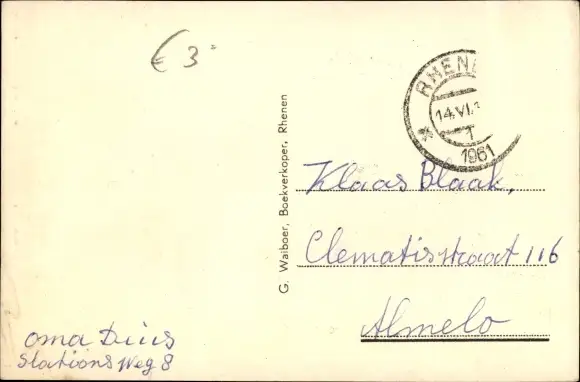 € 3
RHENE
14.VI.1
1
1961
G. Walboer, Boekverkoper, Rhenen
Klaas Blaak,
Clematisstraat 116
Almelo
oma Duis
StationsWeg 8